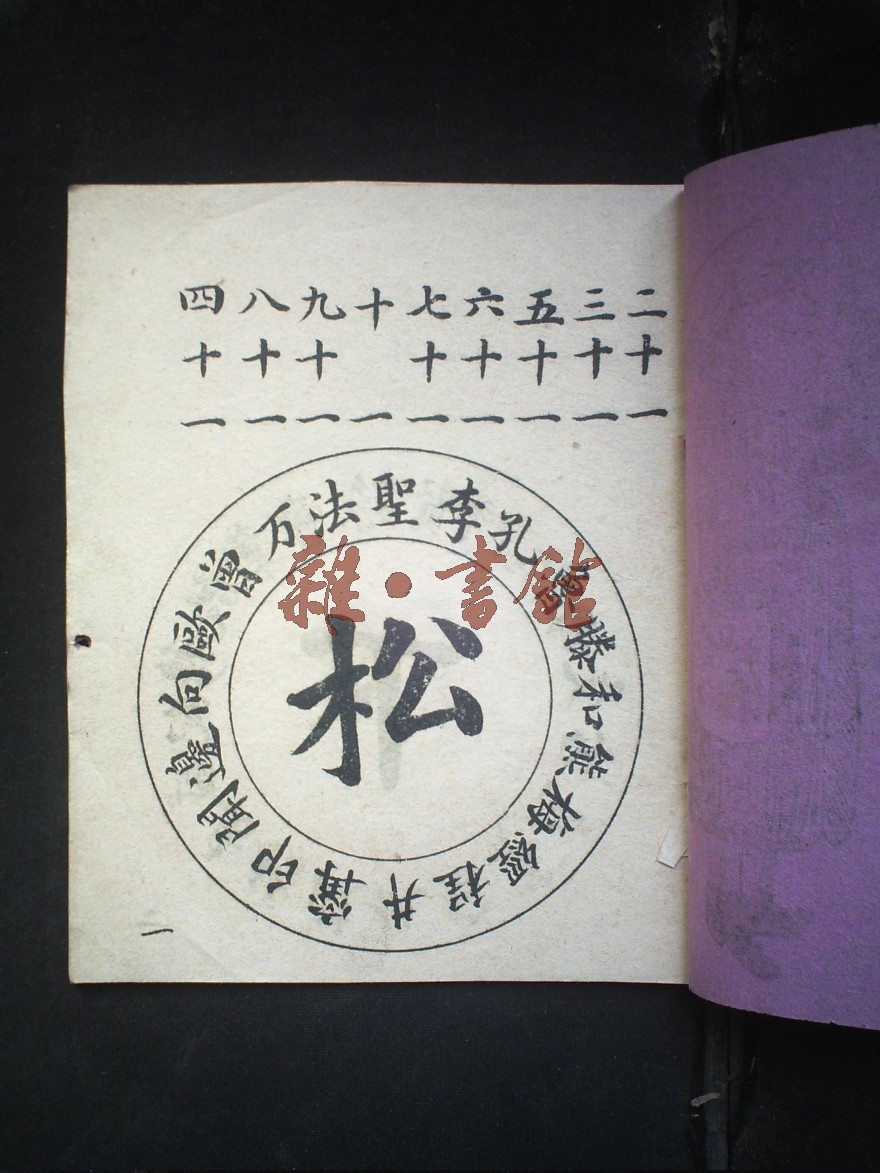 二十一
三十一
五十一
六十一
七十一
十一
九十一
八十一
四十一
万法聖李孔滕和熊梅經程井印邊向歐
松
一
雜·書館